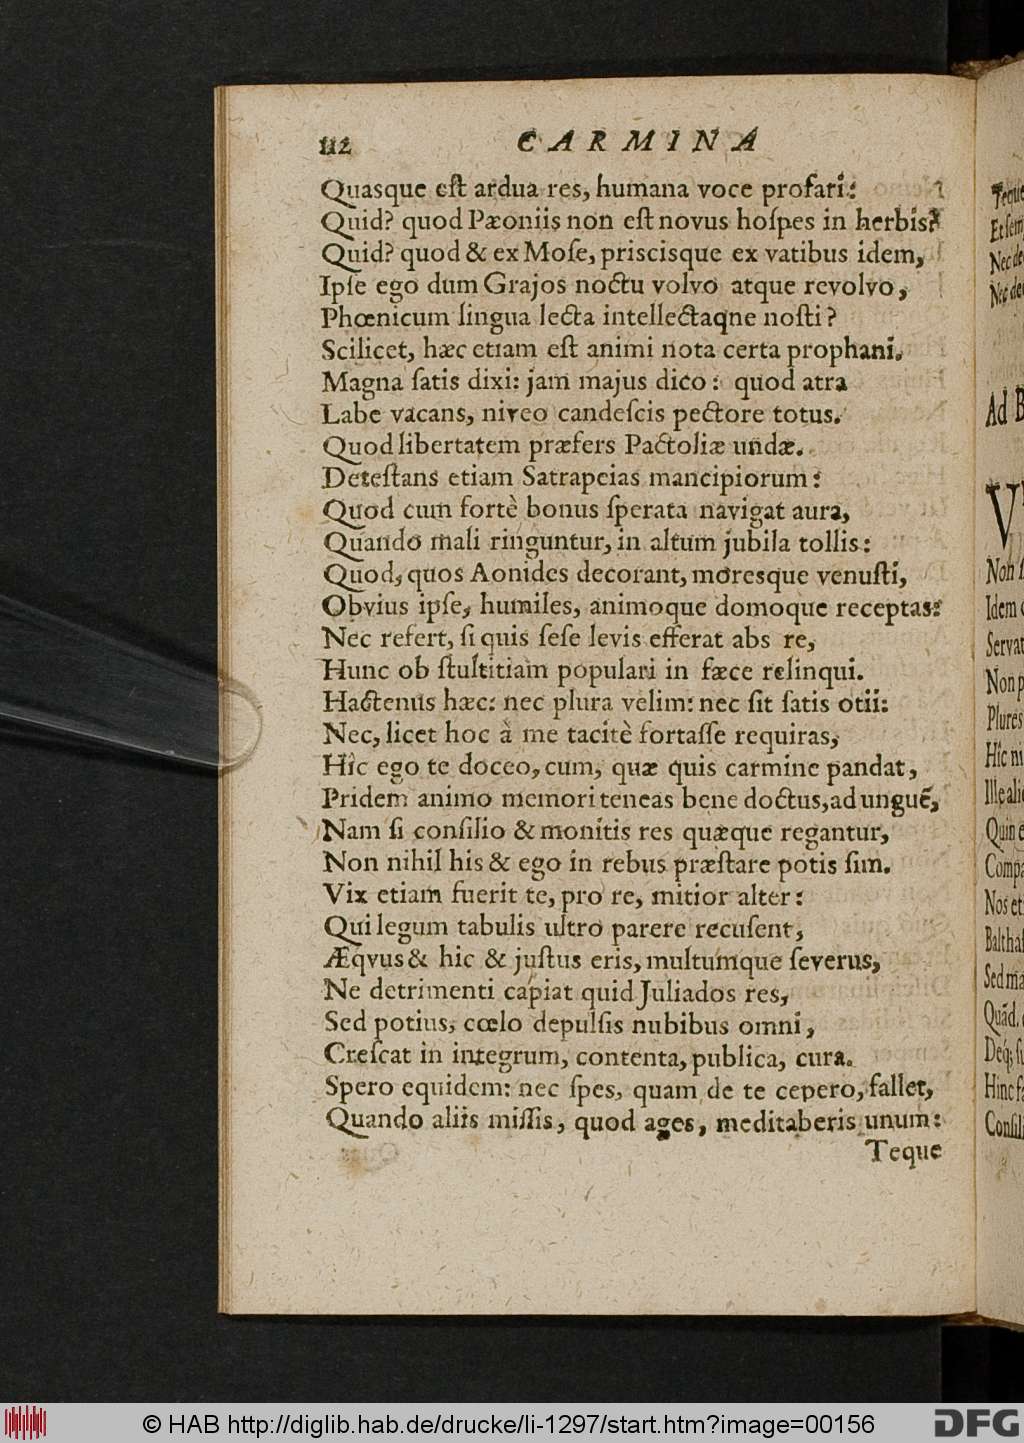 112 CARMINA
Quasque eſt ardua res, humana voce profari:
Quid? quod Pæoniis non eſt novus hoſpes in herbis?
Quid? quod & ex Moſe, priscisque ex vatibus idem,
Ipſe ego dum Grajos noctu volvo atque revolvo,
Phœnicum lingua lecta intellectaqne noſti?
Scilicet, hæc etiam eſt animi nota certa prophani.
Magna ſatis dixi: jam majus dico: quod atra
Labe vacans, niveo candeſcis pectore totus.
Quod libertatem præfers Pactoliæ undæ.
Deteſtans etiam Satrapeias mancipiorum:
Quod cum fortè bonus ſperata navigat aura,
Quando mali ringuntur, in altum jubila tollis:
Quod, quos Aonides decorant, moresque venuſti,
Obvius ipſe, humiles, animoque domoque receptas:
Nec refert, ſi quis ſeſe levis efferat abs re,
Hunc ob ſtultitiam populari in fæce relinqui.
Hactenus hæc: nec plura velim: nec ſit ſatis otii:
Nec, licet hoc à me tacitè fortaſſe requiras,
Hîc ego te doceo, cum, quæ quis carmine pandat,
Pridem animo memori teneas bene doctus, ad unguẽ,
Nam ſi conſilio & monitis res quæque regantur,
Non nihil his & ego in rebus præſtare potis ſim.
Vix etiam fuerit te, pro re, mitior alter:
Qui legum tabulis ultro parere recuſent,
Æqvus & hic & juſtus eris, multumque ſeverus,
Ne detrimenti capiat quid Juliados res,
Sed potius, cœlo depulſis nubibus omni,
Creſcat in integrum, contenta, publica, cura.
Spero equidem: nec ſpes, quam de te cepero, fallet,
Quando aliis miſſis, quod ages, meditaberis unum:
Teque
Teque
Nec
Nec
Ad B
Non
Idem
Servat
Non p
Plures
Hîc
Ille
Quin
Compa
Nos et
Baltha
Sed
Quãd.
Hinc
Conſili
© HAB http://diglib.hab.de/drucke/li-1297/start.htm?image=00156
DFG